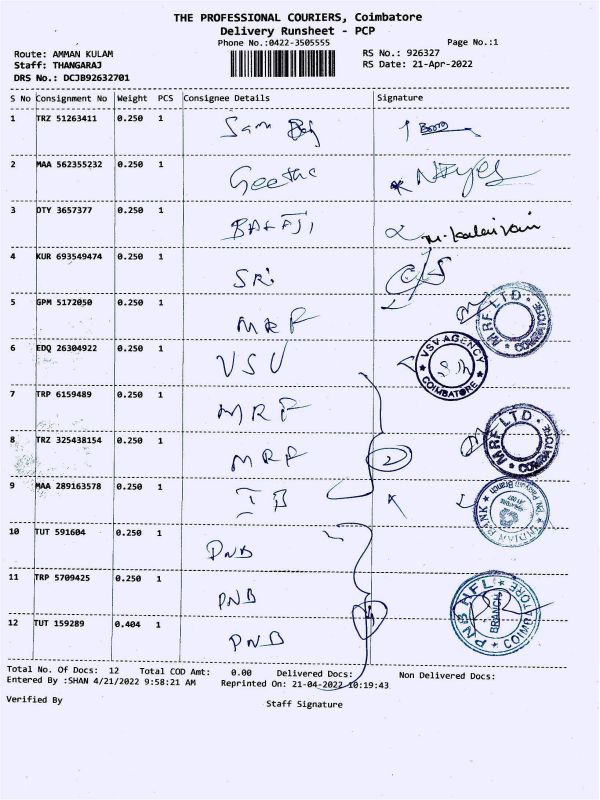 THE PROFESSIONAL COURIERS, Coimbatore
Delivery Runsheet - PCP
Phone No.:0422-3505555
Page No.:1
Route: AMMAN KULAM
RS No.: 926327
Staff: THANGARAJ
RS Date: 21-Apr-2022
DRS No.: DCJB92632701
S No Consignment No Weight PCS Consignee Details Signature
1 TRZ 51263411 0.250 1 Sam
2 MAA 562355232 0.250 1 Geetha
3 DTY 3657377 0.250 1 BALAJI
4 KUR 693549474 0.250 1 SRi
5 GPM 5172050 0.250 1 MRF
MRF LTD. COIMBATORE
6 EDQ 26304922 0.250 1 VSV
VSV AGENCY COIMBATORE
7 TRP 6159489 0.250 1 MRF
8 TRZ 325438154 0.250 1 MRF 2
MRF LTD. COIMBATORE
9 MAA 289163578 0.250 1 IB
INDIAN BANK
10 TUT 591604 0.250 1 PNB
11 TRP 5709425 0.250 1 PNB
PNB NFL BRANCH COIMBATORE
12 TUT 159289 0.404 1 PNB
Total No. Of Docs: 12 Total COD Amt: 0.00 Delivered Docs: Non Delivered Docs:
Entered By :SHAN 4/21/2022 9:58:21 AM Reprinted On: 21-04-2022 10:19:43
Verified By Staff Signature